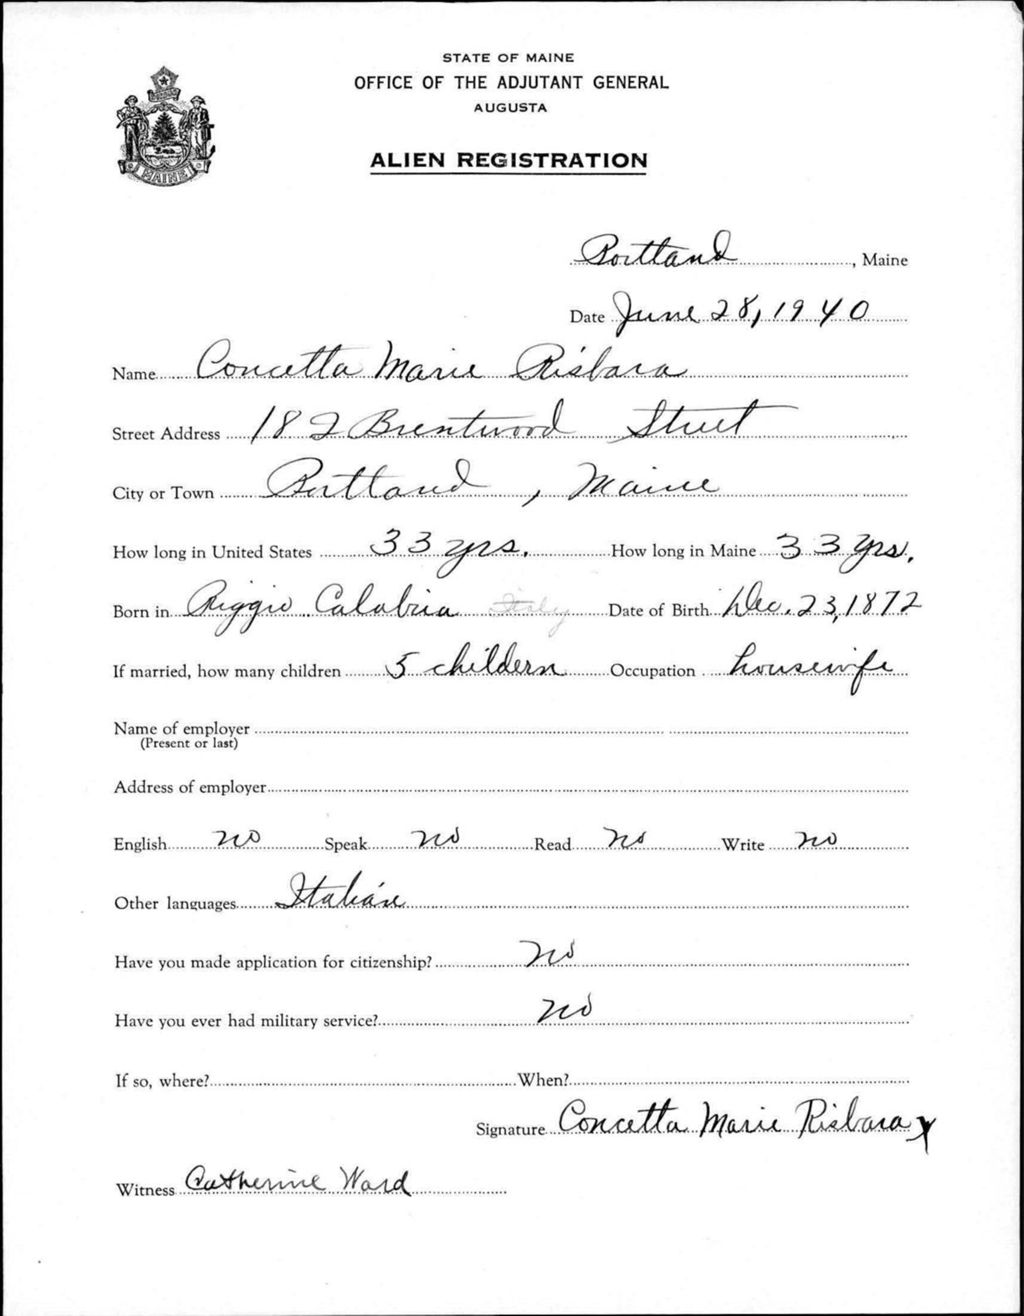 STATE OF MAINE
OFFICE OF THE ADJUTANT GENERAL
AUGUSTA
ALIEN REGISTRATION
MAINE
Portland, Maine
Date June 28, 1940
Name Concetta Marie Risbara
Street Address 182 Brentwood Street
City or Town Portland, Maine
How long in United States 33 yrs. How long in Maine 33 yrs.
Born in Riggio Calabria Italy Date of Birth Dec. 23, 1872
If married, how many children 5 childern Occupation housewife
Name of employer
(Present or last)
Address of employer
English no Speak no Read no Write no
Other languages Italian
Have you made application for citizenship? No
Have you ever had military service? no
If so, where? When?
Signature Concetta Marie Risbara x
Witness Catherine Ward